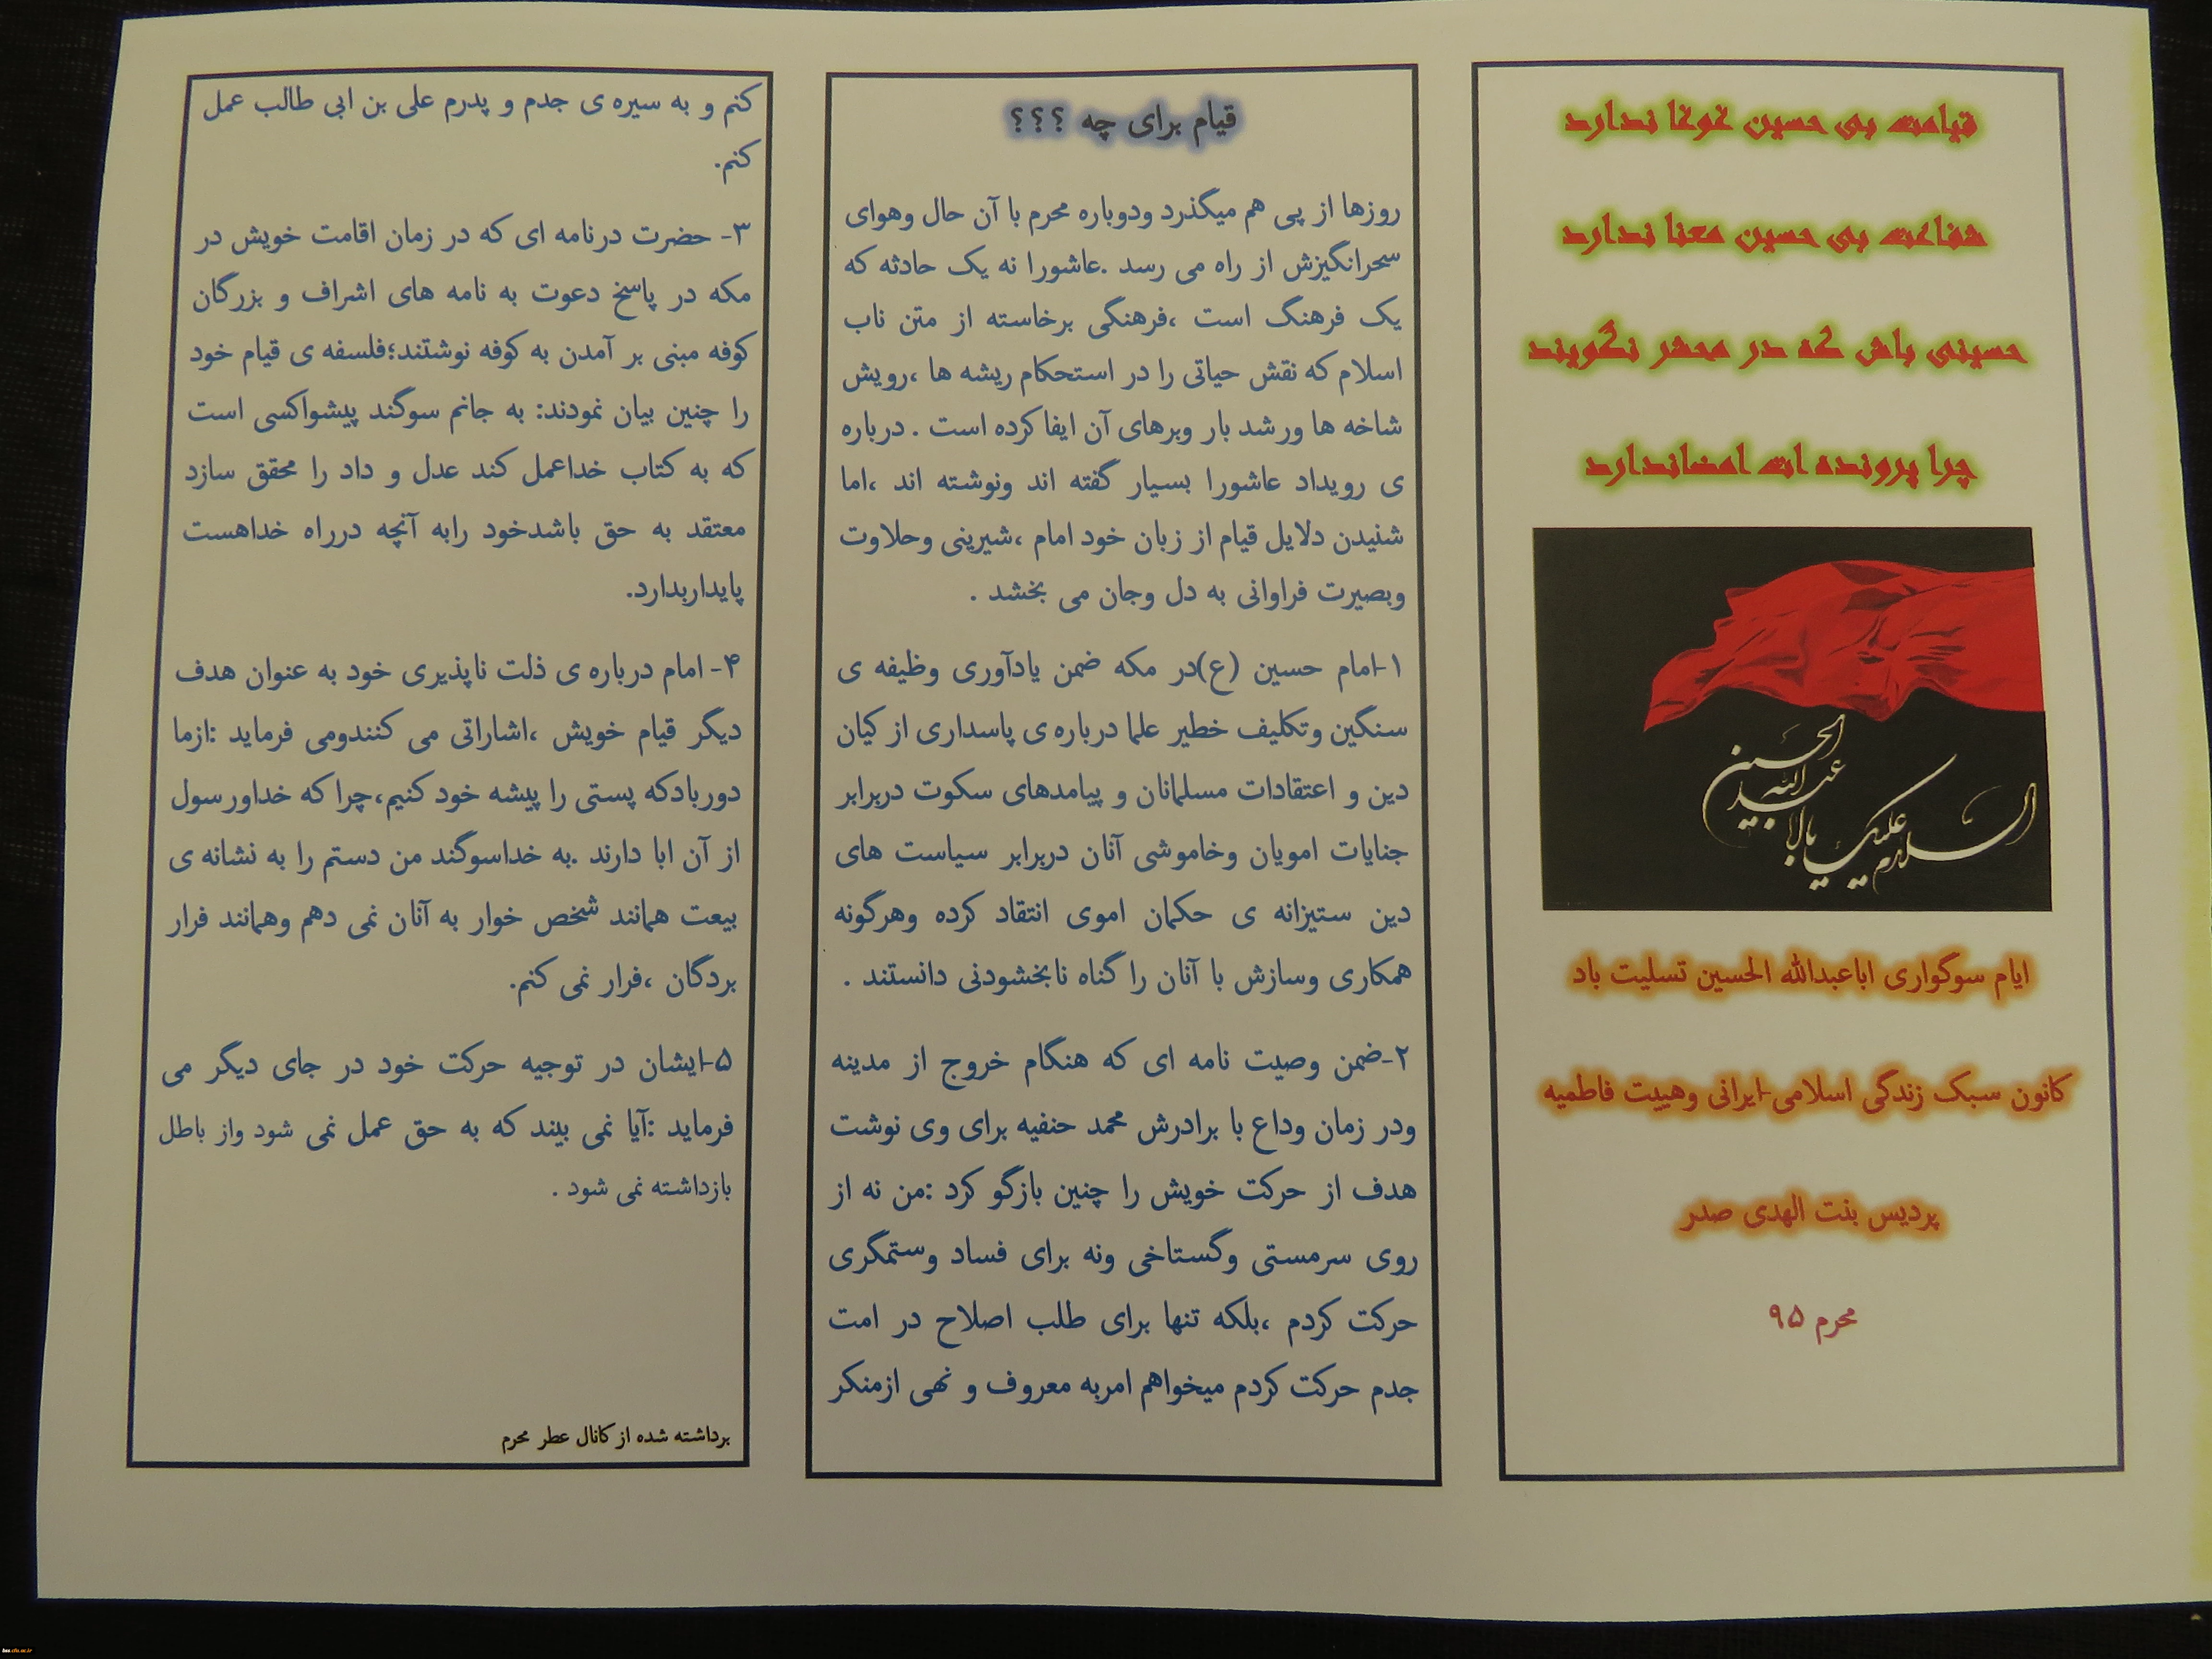 قیامت بی حسین غوغا ندارد
شفاعت بی حسین معنا ندارد
حسینی باش که در محشر نگویند
چرا پرونده ات امضاندارد
السلام علیک یا ابا عبدالله الحسین
ایام سوگواری اباعبدالله الحسین تسلیت باد
کانون سبک زندگی اسلامی-ایرانی وهییت فاطمیه
پردیس بنت الهدی صدر
محرم ۹۵
قیام برای چه ؟؟؟
روزها از پی هم میگذرد ودوباره محرم با آن حال وهوای
سحرانگیزش از راه می رسد .عاشورا نه یک حادثه که
یک فرهنگ است ،فرهنگی برخاسته از متن ناب
اسلام که نقش حیاتی را در استحکام ریشه ها ،رویش
شاخه ها ورشد بار وبرهای آن ایفا کرده است . درباره
ی رویداد عاشورا بسیار گفته اند ونوشته اند ،اما
شنیدن دلایل قیام از زبان خود امام ،شیرینی وحلاوت
وبصیرت فراوانی به دل وجان می بخشد .
۱-امام حسین (ع)در مکه ضمن یادآوری وظیفه ی
سنگین وتکلیف خطیر علما درباره ی پاسداری از کیان
دین و اعتقادات مسلمانان و پیامدهای سکوت دربرابر
جنایات امویان وخاموشی آنان دربرابر سیاست های
دین ستیزانه ی حکمان اموی انتقاد کرده وهرگونه
همکاری وسازش با آنان را گناه نابخشودنی دانستند .
۲-ضمن وصیت نامه ای که هنگام خروج از مدینه
ودر زمان وداع با برادرش محمد حنفیه برای وی نوشت
هدف از حرکت خویش را چنین بازگو کرد :من نه از
روی سرمستی وگستاخی ونه برای فساد وستمگری
حرکت کردم ،بلکه تنها برای طلب اصلاح در امت
جدم حرکت کردم میخواهم امربه معروف و نهی ازمنکر
کنم و به سیره ی جدم و پدرم علی بن ابی طالب عمل
کنم.
۳- حضرت درنامه ای که در زمان اقامت خویش در
مکه در پاسخ دعوت به نامه های اشراف و بزرگان
کوفه مبنی بر آمدن به کوفه نوشتند؛فلسفه ی قیام خود
را چنین بیان نمودند: به جانم سوگند پیشواکسی است
که به کتاب خداعمل کند عدل و داد را محقق سازد
معتقد به حق باشدخود رابه آنچه درراه خداهست
پایداربدارد.
۴- امام درباره ی ذلت ناپذیری خود به عنوان هدف
دیگر قیام خویش ،اشاراتی می کنندومی فرماید :ازما
دوربادکه پستی را پیشه خود کنیم،چرا که خداورسول
از آن ابا دارند .به خداسوگند من دستم را به نشانه ی
بیعت همانند شخص خوار به آنان نمی دهم وهمانند فرار
بردگان ،فرار نمی کنم.
۵-ایشان در توجیه حرکت خود در جای دیگر می
فرماید :آیا نمی بیند که به حق عمل نمی شود واز باطل
بازداشته نمی شود .
برداشته شده از کانال عطر محرم